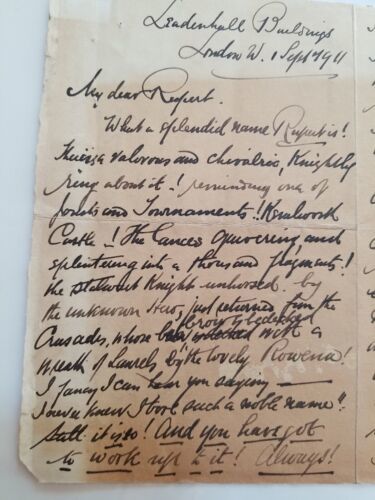 Leadenhall Buildings
London W. 1 Sept 1911
My dear Rupert.
What a splendid name Rupert is!
there is a valorous and chivalric, Knightly
ring about it! reminding one of
jousts and Tournaments! Kenilworth
Castle! The lances quivering and
splintering into a thousand fragments!
the stalwart Knight unhorsed by
the unknown Hero, just returned from the
Crusades, whose brow is bedecked with a
wreath of Laurels, by the lovely Rowena!
I fancy I can hear you saying —
I never knew I bore such a noble name"
still it is so! And you have got
to work up to it! Always!